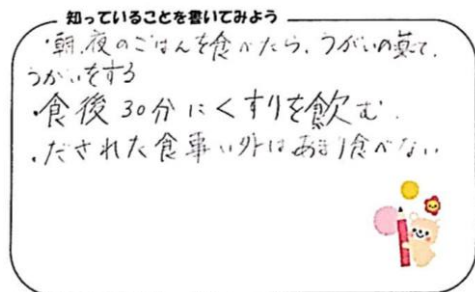 知っていることを書いてみよう
・朝、夜のごはんを食べたら、うがいの薬で、
うがいをする
・食後30分にくすりを飲む.
・だされた食事い外はあまり食べない